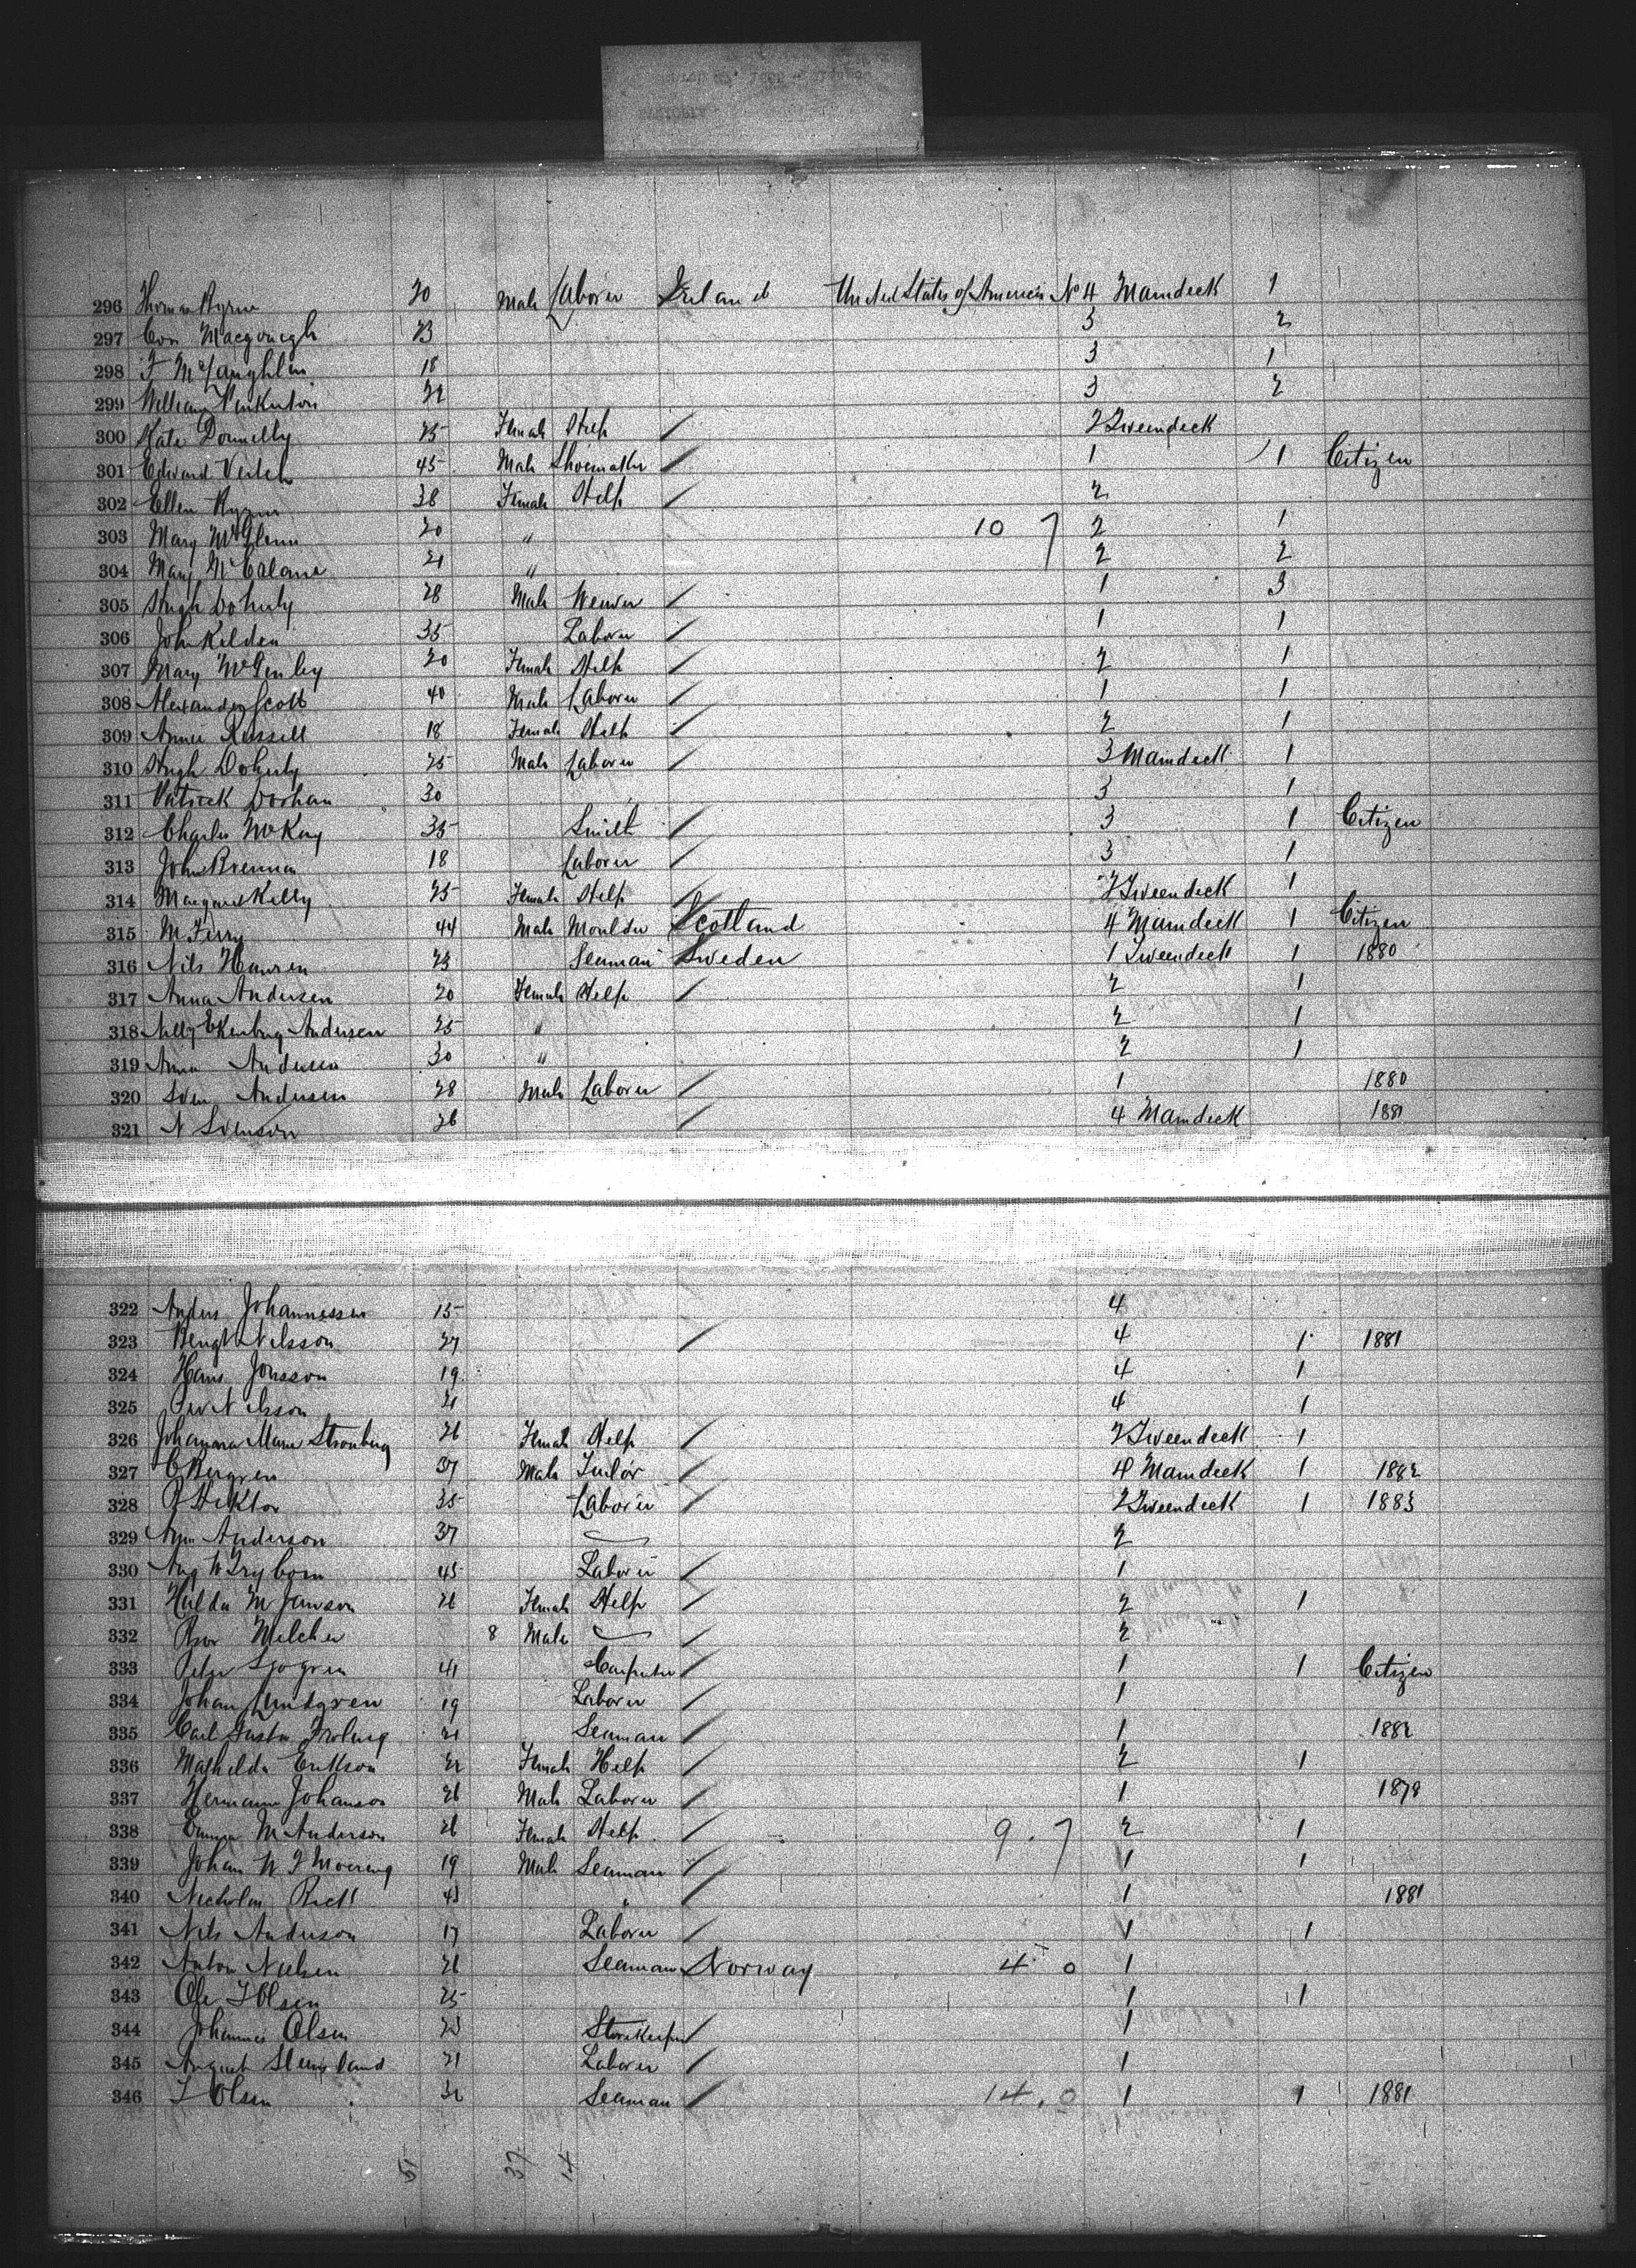 296 Thomas Byrne 20 Male Laborer Ireland United States of America No 4 Maindeck 1
297 Con Macgonegh 23 3 2
298 F McLaughlin 18 3 1
299 William Pinkerton 32 3 2
300 Kate Donnelly 25 Female Help 2 Tweendeck
301 Edward Veitch 45 Male Shoemaker 1 1 Citizen
302 Ellen 28 Female Help 2
303 Mary McGlenn 20 " 10 7 2 1
304 Mary McCalane 21 " 2 2
305 Hugh Doherty 28 Male Weaver 1 3
306 John Kelden 35 Laborer 1 1
307 Mary McGinley 20 Female Help 2 1
308 Alexander Scott 40 Male Laborer 1 1
309 Annie Russell 18 Female Help 2 1
310 Hugh Doherty 25 Male Laborer 3 Maindeck 1
311 Patrick Dorhan 30 3 1
312 Charles McKay 35 Smith 3 1 Citizen
313 John Brennan 18 Laborer 3 1
314 Margaret Kelly 25 Female Help 2 Tweendeck 1
315 M Ferry 44 Male Moulder Scotland 4 Maindeck 1 Citizen
316 Nils Hansen 23 Seaman Sweden 1 Tweendeck 1 1880
317 Anna Andersen 20 Female Help 2 1
318 Nelly Ekenberg Andersen 25 " 2 1
319 Anna Andersen 30 " 2 1
320 Sven Andersen 28 Male Laborer 1 1880
321 N Svenson 26 4 Maindeck 1881
322 Anders Johannessen 15 4
323 Bengt Nilsson 27 4 1 1881
324 Hans Jonsson 19 4 1
325 Per Nilsson 21 4 1
326 Johanna Marie Stromberg 26 Female Help 2 Tweendeck 1
327 C Bergren 37 Male Tailor 4 Maindeck 1 1882
328 P Hektor 35 Laborer 2 Tweendeck 1 1883
329 Anderson 37 2
330 Aug W Fryborn 45 Laborer 1
331 Hulda M Janson 26 Female Help 2 1
332 Melcher 8 Male 2
333 Peter Sjogren 41 Carpenter 1 1 Citizen
334 Johan Lundgren 19 Laborer 1
335 Carl Gustav Froberg 21 Seaman 1 1882
336 Mathilda Erikson 22 Female Help 2 1
337 Hermann Johanson 26 Male Laborer 1 1878
338 Emma M Anderson 26 Female Help 9.7 2 1
339 Johan W F Moering 19 Male Seaman 1 1
340 Nicholas 43 " 1 1881
341 Nils Anderson 17 Laborer 1 1
342 Anton Nielsen 26 Seaman Norway 4 0 1
343 Ole T Olsen 25 1 1
344 Johannes Olsen 23 Storekeeper 1
345 August 21 Laborer 1
346 T Olsen 32 Seaman 14.0 1 1 1881
51 37 14